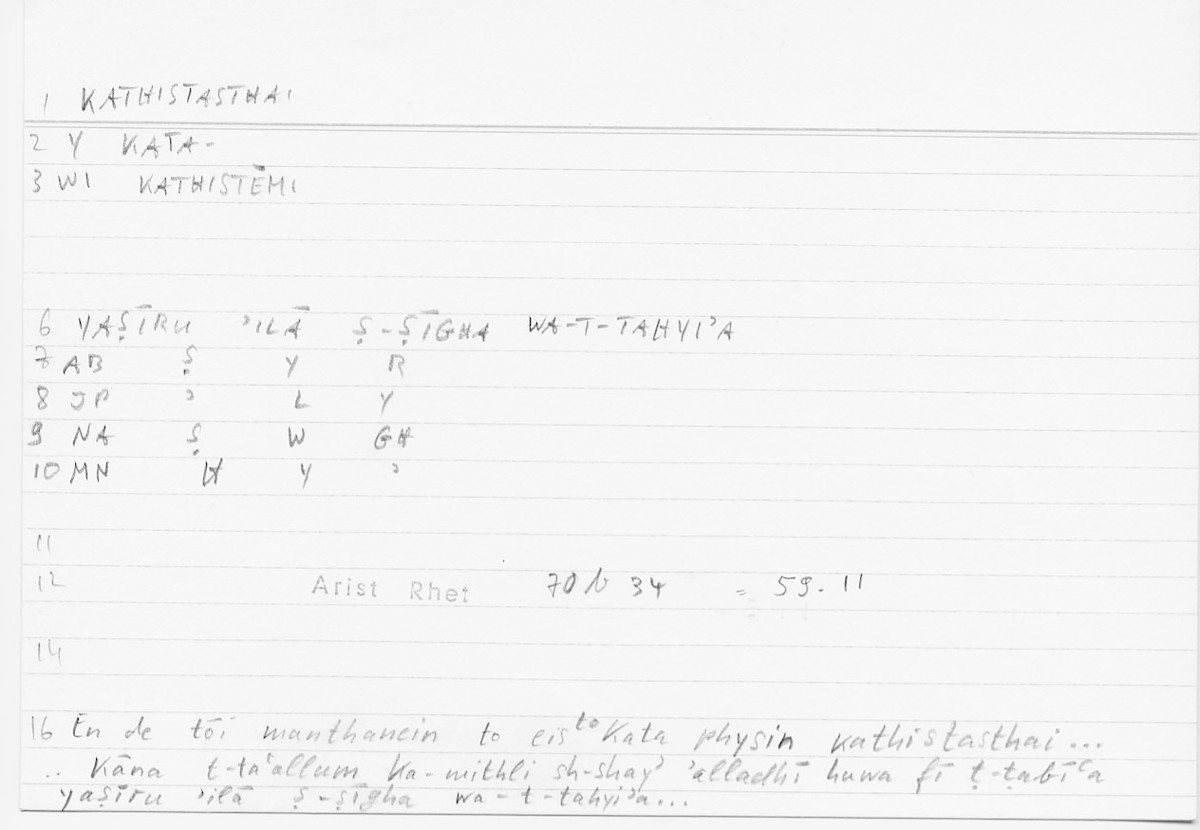 1 KATHISTASTHAI
2 Y KATA-
3 WI KATHISTĒMI
6 YAṢĪRU ʾILĀ Ṣ-ṢĪGHA WA-T-TAHYIʾA
7 AB Ṣ Y R
8 JP ʾ L Y
9 NA Ṣ W GH
10 MN H Y ʾ
11
12 Arist Rhet 70 b 34 = 59.11
14
16 En de tōi manthanein to eis to Kata physin kathistasthai...
.. Kāna t-taʿallum ka-mithli sh-shayʾ ʾalladhī huwa fī ṭ-ṭabīʿa
yaṣīru ʾilā ṣ-ṣīgha wa-t-tahyiʾa...